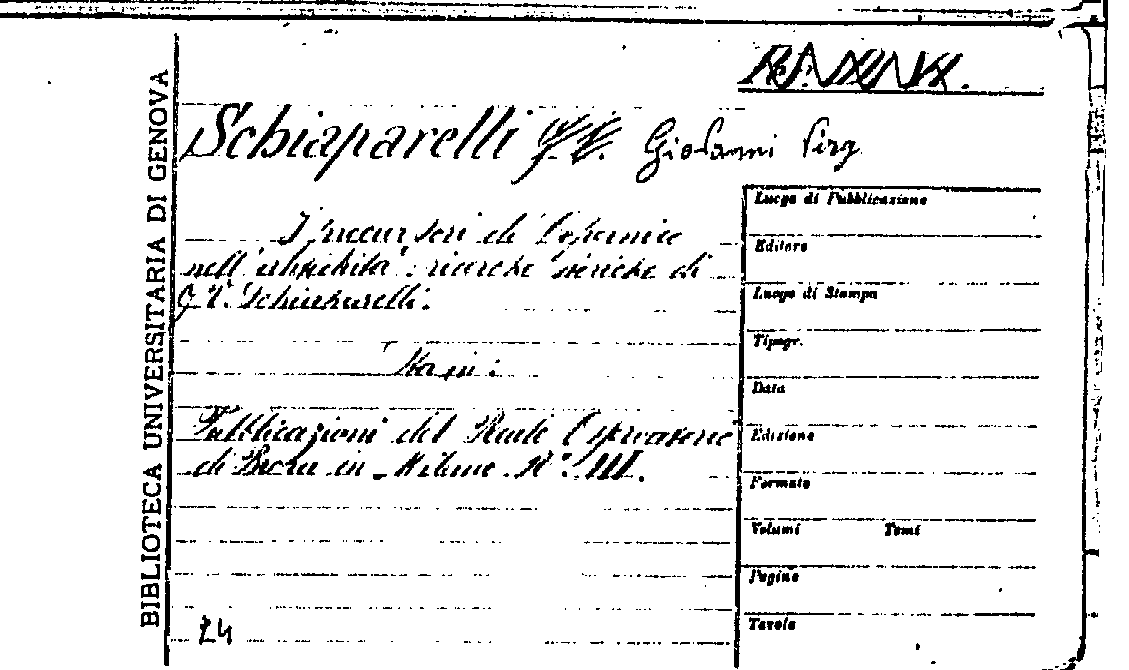 BIBLIOTECA UNIVERSITARIA DI GENOVA
Schiaparelli Giovanni Virg
I precursori di Copernico
nell'antichità: ricerche storiche di
G. V. Schiaparelli.
Sta in:
Pubblicazioni del Reale Osservatorio
di Brera in Milano. N.° III.
24
Luogo di Pubblicazione
Editore
Luogo di Stampa
Tipogr.
Data
Edizione
Formato
Volumi Tomi
Pagine
Tavole